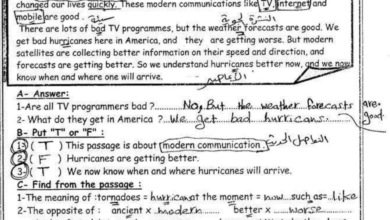 changed our lives quickly. These modern communications like TV, internet and
mobile are good.
There are lots of bad TV programmes, but the weather forecasts are good. We
get bad hurricanes here in America, and they are getting worse. But modern
satellites are collecting better information on their speed and direction, and
forecasts are getting better. So we understand hurricanes better now, and we now
know when and where one will arrive.
A- Answer:
1-Are all TV programmers bad ? No, But the weather forecasts are good.
2- What do they get in America ? We get bad hurricans.
B- Put "T" or "F" :
1- ( T ) This passage is about modern communication.
2- ( F ) Hurricanes are getting better.
3- ( T ) We now know when and where hurricanes will arrive.
C- Find from the passage :
1-The meaning of :tornadoes = hurricans at the moment = now such as= like
2-The opposite of : ancient x modern better x worse